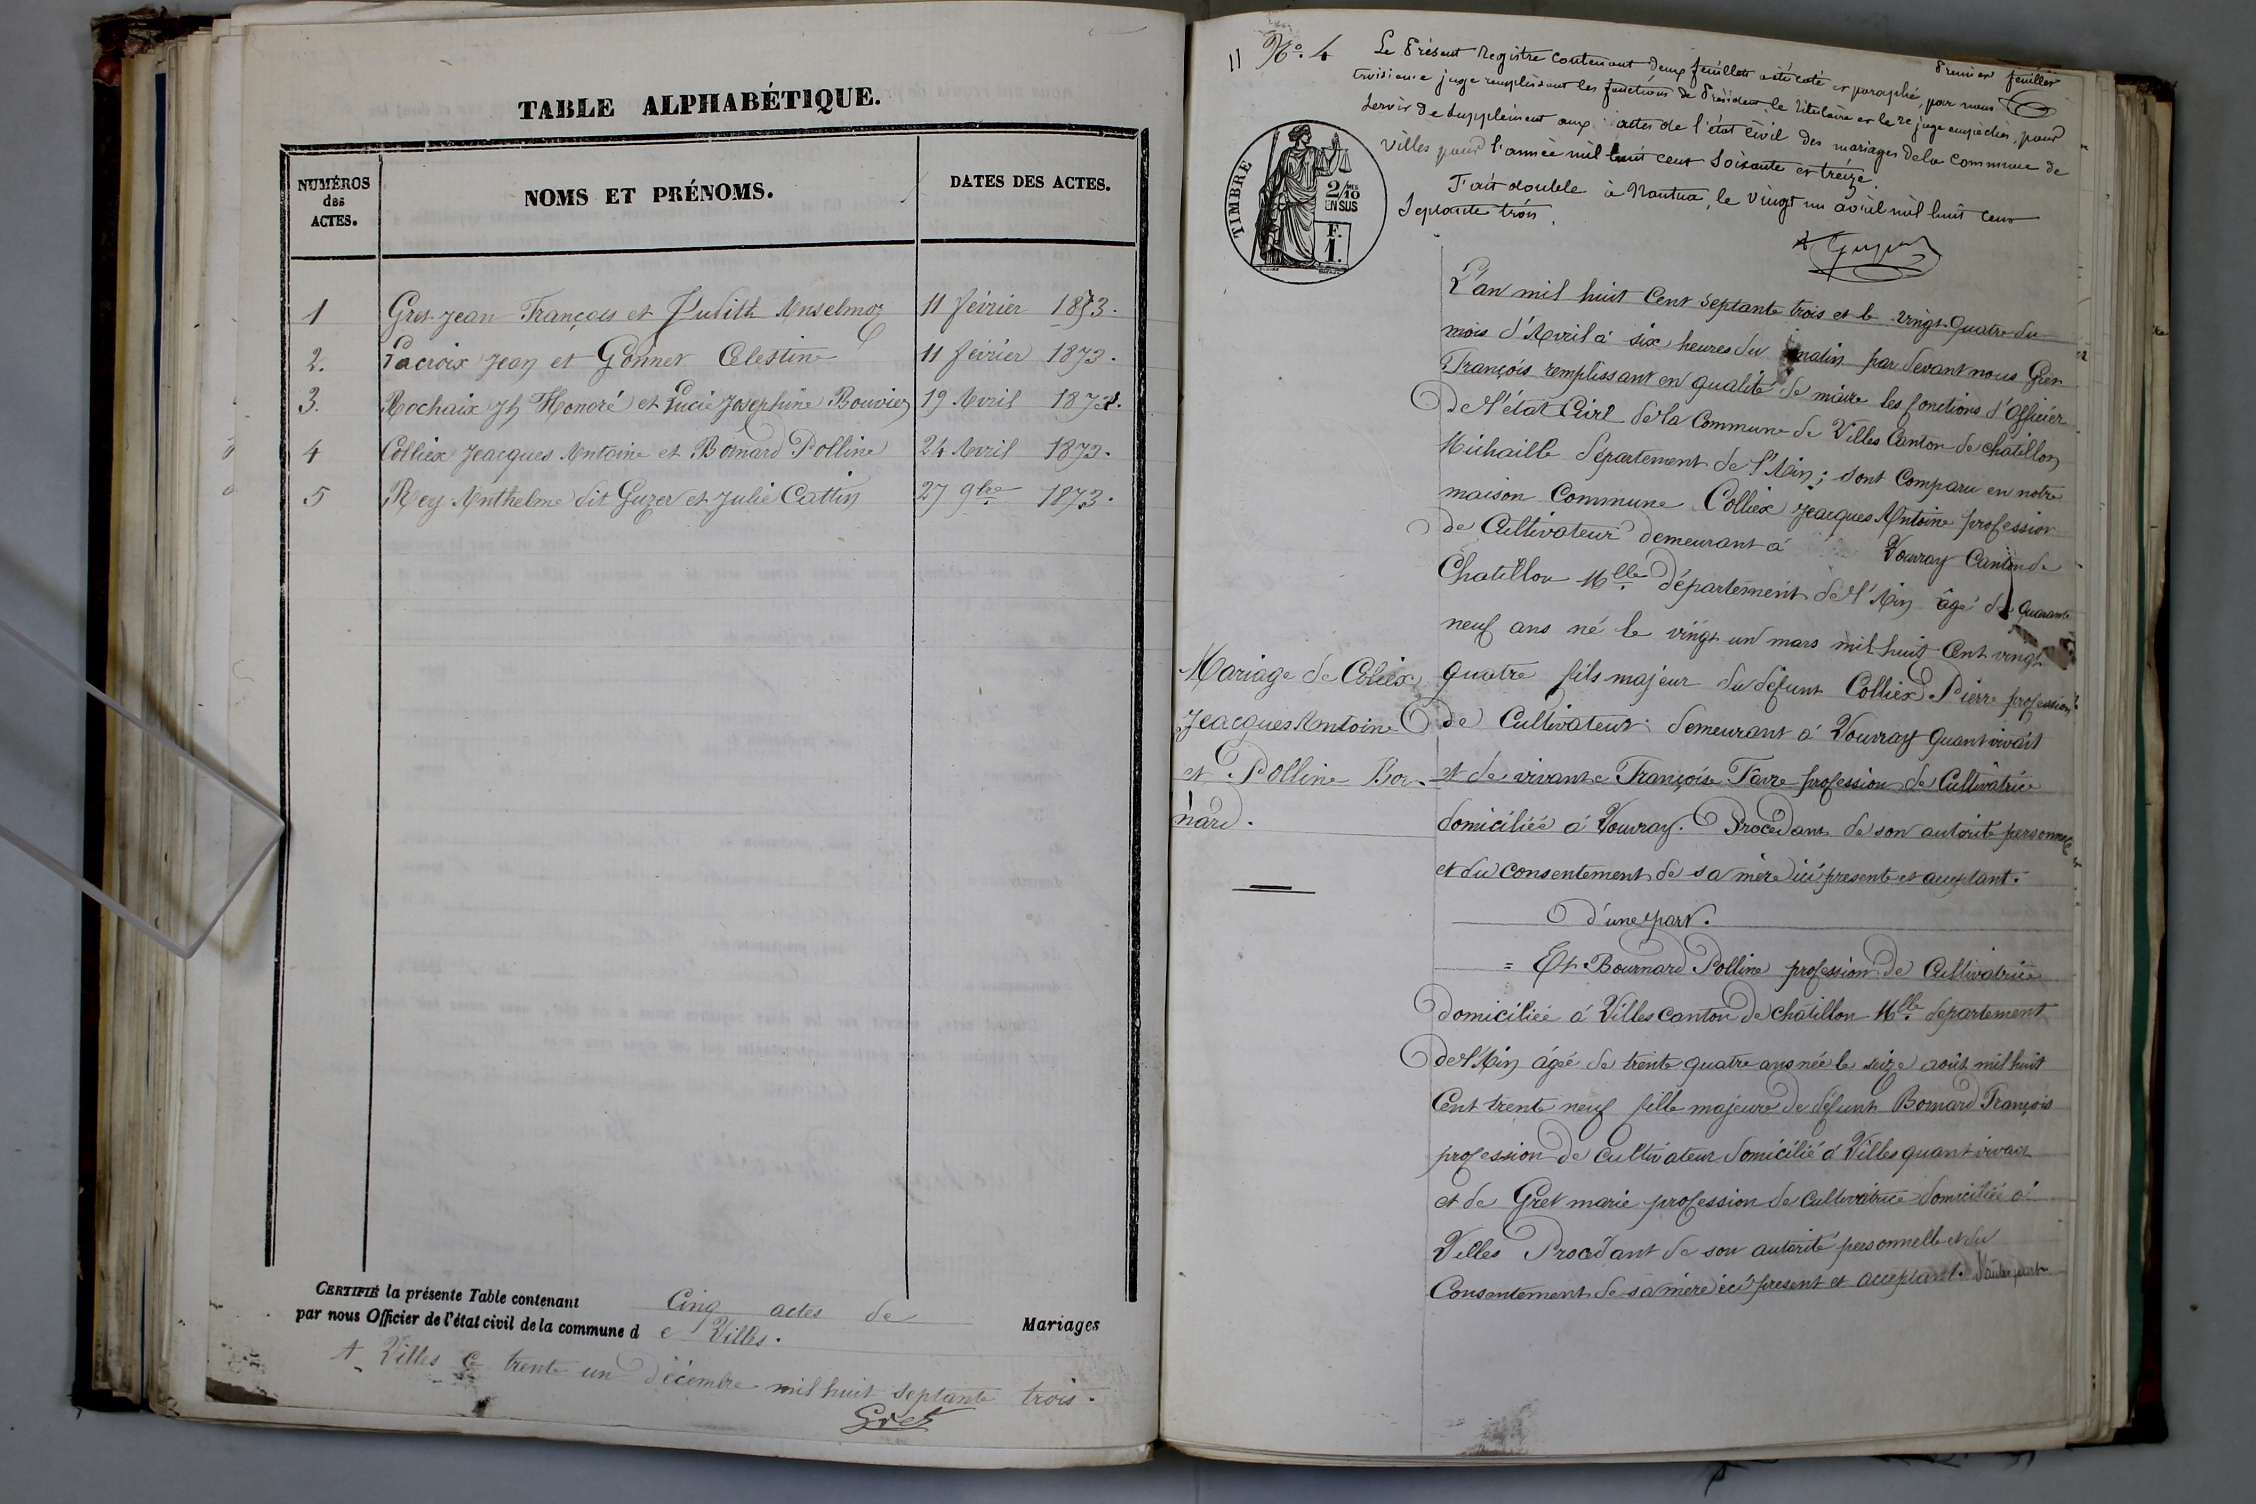 TABLE ALPHABÉTIQUE.
NUMÉROS
des
ACTES.
NOMS ET PRÉNOMS.
DATES DES ACTES.
1 Gret Jean François et Judith Anselmoz 11 février 1873.
2. Lacroix Jean et Gonnet Célestine 11 février 1873.
3. Rochaix Jh Honoré et Lucie Josephine Bouvier 19 Avril 1873.
4 Colliex Jeacques Antoine et Bornard Polline 24 Avril 1873.
5 Rey Anthelme dit Guzer et Julie Cattin 27 9bre 1873.
CERTIFIÉ la présente Table contenant Cinq actes de Mariages
par nous Officier de l'état civil de la commune d e Villes.
A Villes ce trente un Décembre mil huit septante trois.
Gret
11 No. 4
Premier feuillet
Le Présent Registre contenant deux feuillets a été coté et paraphé, par nous
troisième juge remplissant les fonctions de Président, le titulaire et le 2e juge empêchés, pour
servir de supplément aux actes de l'état civil des mariages de la commune de
Villes pour l'année mil huit cent soixante et treize.
Fait double à Nantua, le vingt un avril mil huit cent
septante trois.
TIMBRE
2/10
EN SUS
F.
1.
L'an mil huit Cent septante trois et le vingt quatre du
mois d'Avril à six heures du matin par devant nous Gret
François remplissant en qualité de maire les fonctions d'Officier
de l'état Civil de la Commune de Villes Canton de chatillon
Michaille département de l'Ain ; sont comparu en notre
maison Commune Colliex Jeacques Antoine profession
de Cultivateur demeurant à Vouvray Canton de
Chatillon Mlle département de l'Ain âgé de quarante
neuf ans né le vingt un mars mil huit Cent vingt
quatre fils majeur du défunt Colliex Pierre profession
de Cultivateur demeurant à Vouvray quant vivait
et de vivante Françoise Favre profession de Cultivatrice
domiciliée à Vouvray. Procédant de son autorité personnelle
et du consentement de sa mère ici présente et acceptant.
D'une part.
Mariage de Coliex
Jeacques Antoine
et Polline Bor-
nard.
= Et Bournard Polline profession de Cultivatrice
domiciliée à Villes canton de châtillon Mlle département
de l'Ain âgée de trente quatre ans née le seize août mil huit
Cent trente neuf fille majeure de défunt Bornard François
profession de Cultivateur domicilié à Villes quant vivait
et de Gret marie profession de Cultivatrice domiciliée à
Villes Procédant de son autorité personnelle et du
Consentement de sa mère ici présent et acceptant. D'autre part